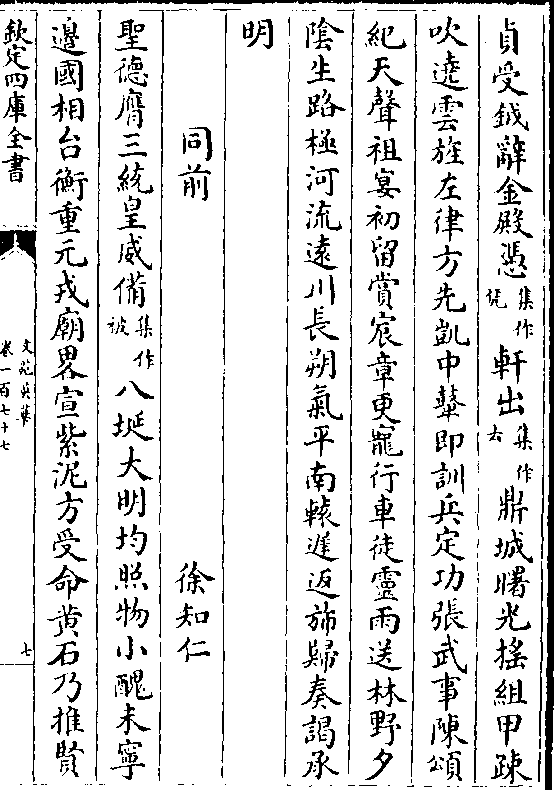 貞受鉞辭金殿憑集作凭軒出集作去鼎城曙光揺組甲疎
吹遶雲旌左律方先凱中鼙即訓兵定功張武事陳頌
紀天聲祖宴初留賞宸章更寵行車徒靈雨送林野夕
陰生路極河流遠川長朔氣平南轅遲返斾歸奏謁承
明
同前 徐知仁
聖德膺三統皇威備集作被八埏大明均照物小醜未寧
邉國相台衡重元戎廟畧宣紫泥方受命黄石乃推賢
欽定四庫全書
文苑英華
卷一百七十七
七